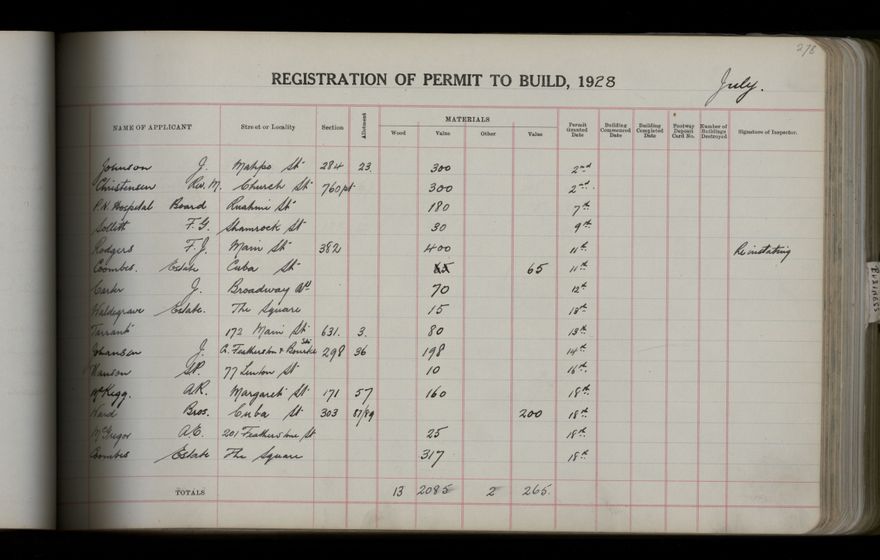 278
REGISTRATION OF PERMIT TO BUILD, 1928 July.
NAME OF APPLICANT Street or Locality Section Allotment MATERIALS Wood Value Other Value Permit Granted Date Building Commenced Date Building Completed Date Footway Deposit Card No. Number of Buildings Destroyed Signature of Inspector.
Johnson J. St 284 23. 300 2nd
Christensen Rev. M. Church St 760pt 300 2nd.
P.N. Hospital Board Ruahine St 180 7th
Sollitt F.G. Shamrock St 30 9th
Rodgers F.J. Main St 382 400 11th Reinstating
Coombes. Estate Cuba St 65 11th
Carter J. Broadway Av 70 12th
Waldegrave Estate. The Square 15 13th
Tarrant 172 Main St 631. 3. 80 13th
Johanson J. C. Featherston & Bourke Sts 298 36 198 14th
77 Linton St 10 16th.
McKegg. A.R. Margaret St 171 57 160 18th
Ward Bros. Cuba St 303 87/89 200 18th
McGregor A.E. 201 Featherstone St 25 18th
Coombes Estate The Square 317 18th
TOTALS 13 2085 2 265
BUSINESS